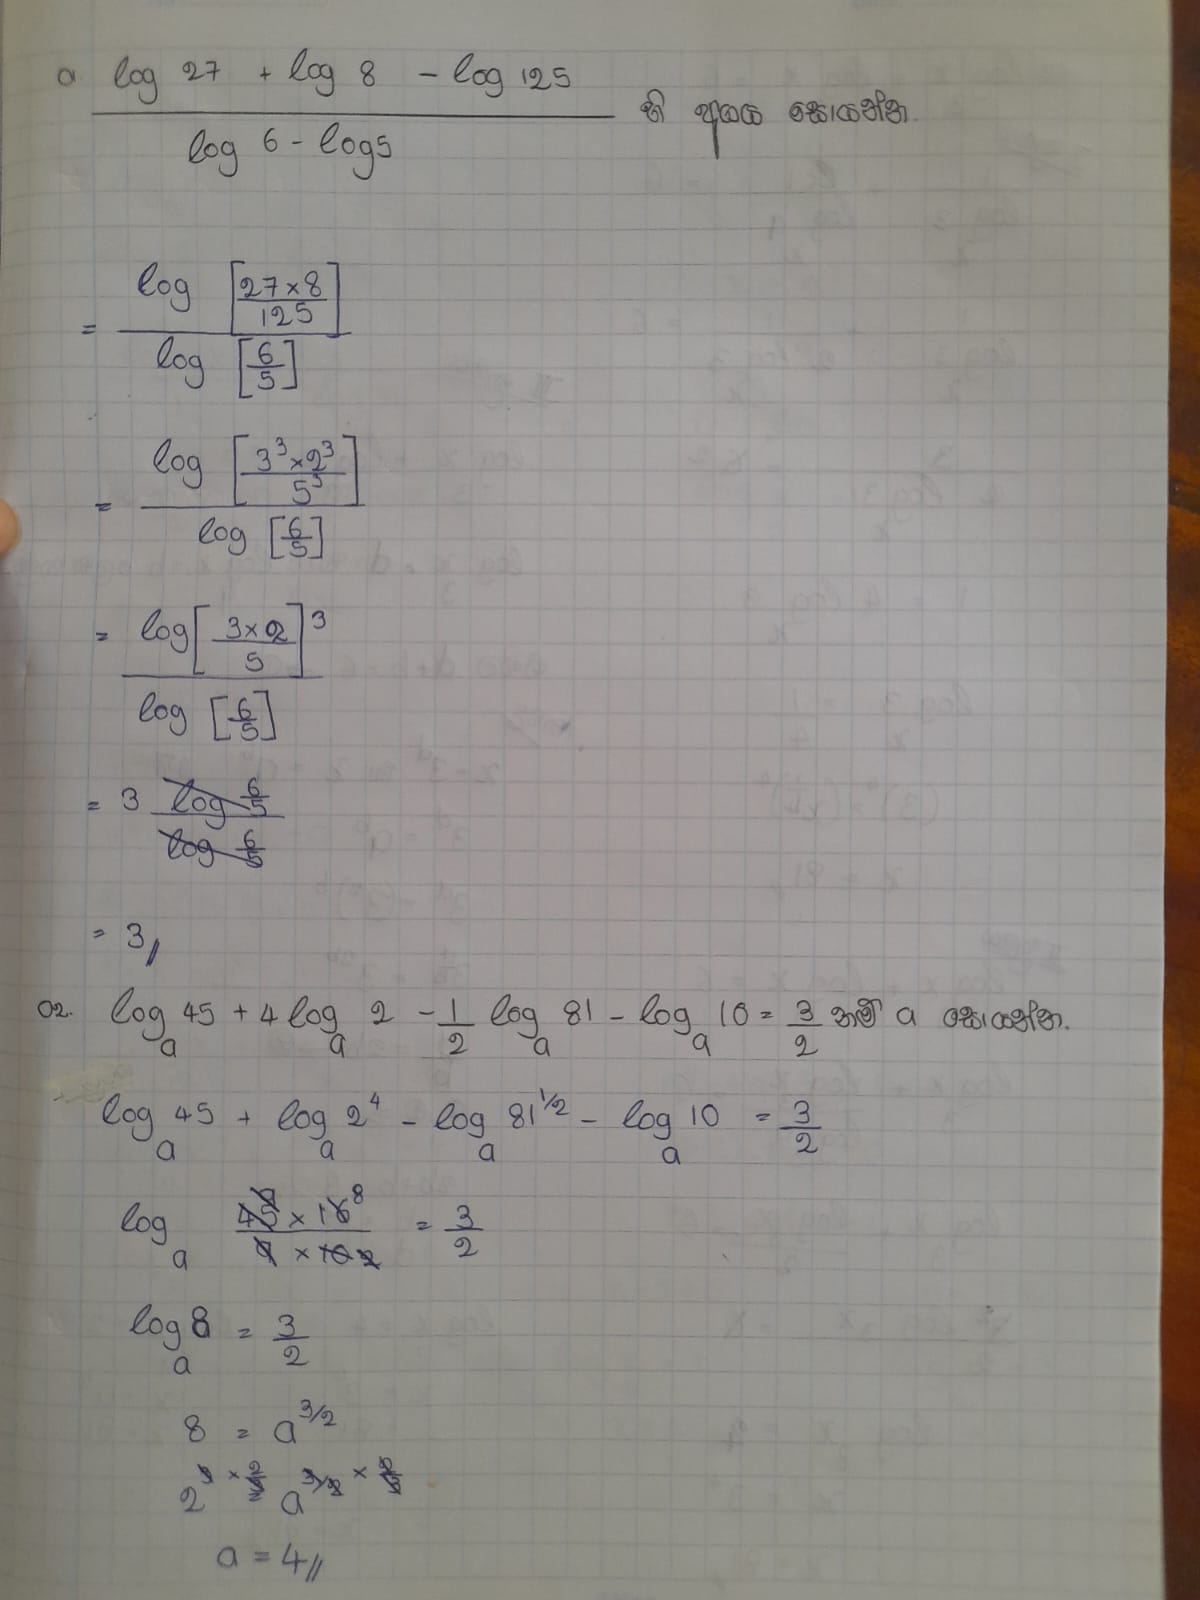 a log 27 + log 8 - log 125 / log 6 - log5 හි අගය සොයන්න.
= log [27×8/125] / log [6/5]
= log [3³×2³/5³] / log [6/5]
= log [3×2/5]³ / log [6/5]
= 3 log 6/5 / log 6/5
= 3//
02. logₐ 45 + 4 logₐ 2 - 1/2 logₐ 81 - logₐ 10 = 3/2 නම් a සොයන්න.
logₐ 45 + logₐ 2⁴ - logₐ 81^1/2 - logₐ 10 = 3/2
logₐ 45 × 16 8 / 9 × 10 2 = 3/2
logₐ 8 = 3/2
8 = a^3/2
2^3 × 2/3 a^3/2 × 2/3
a = 4//